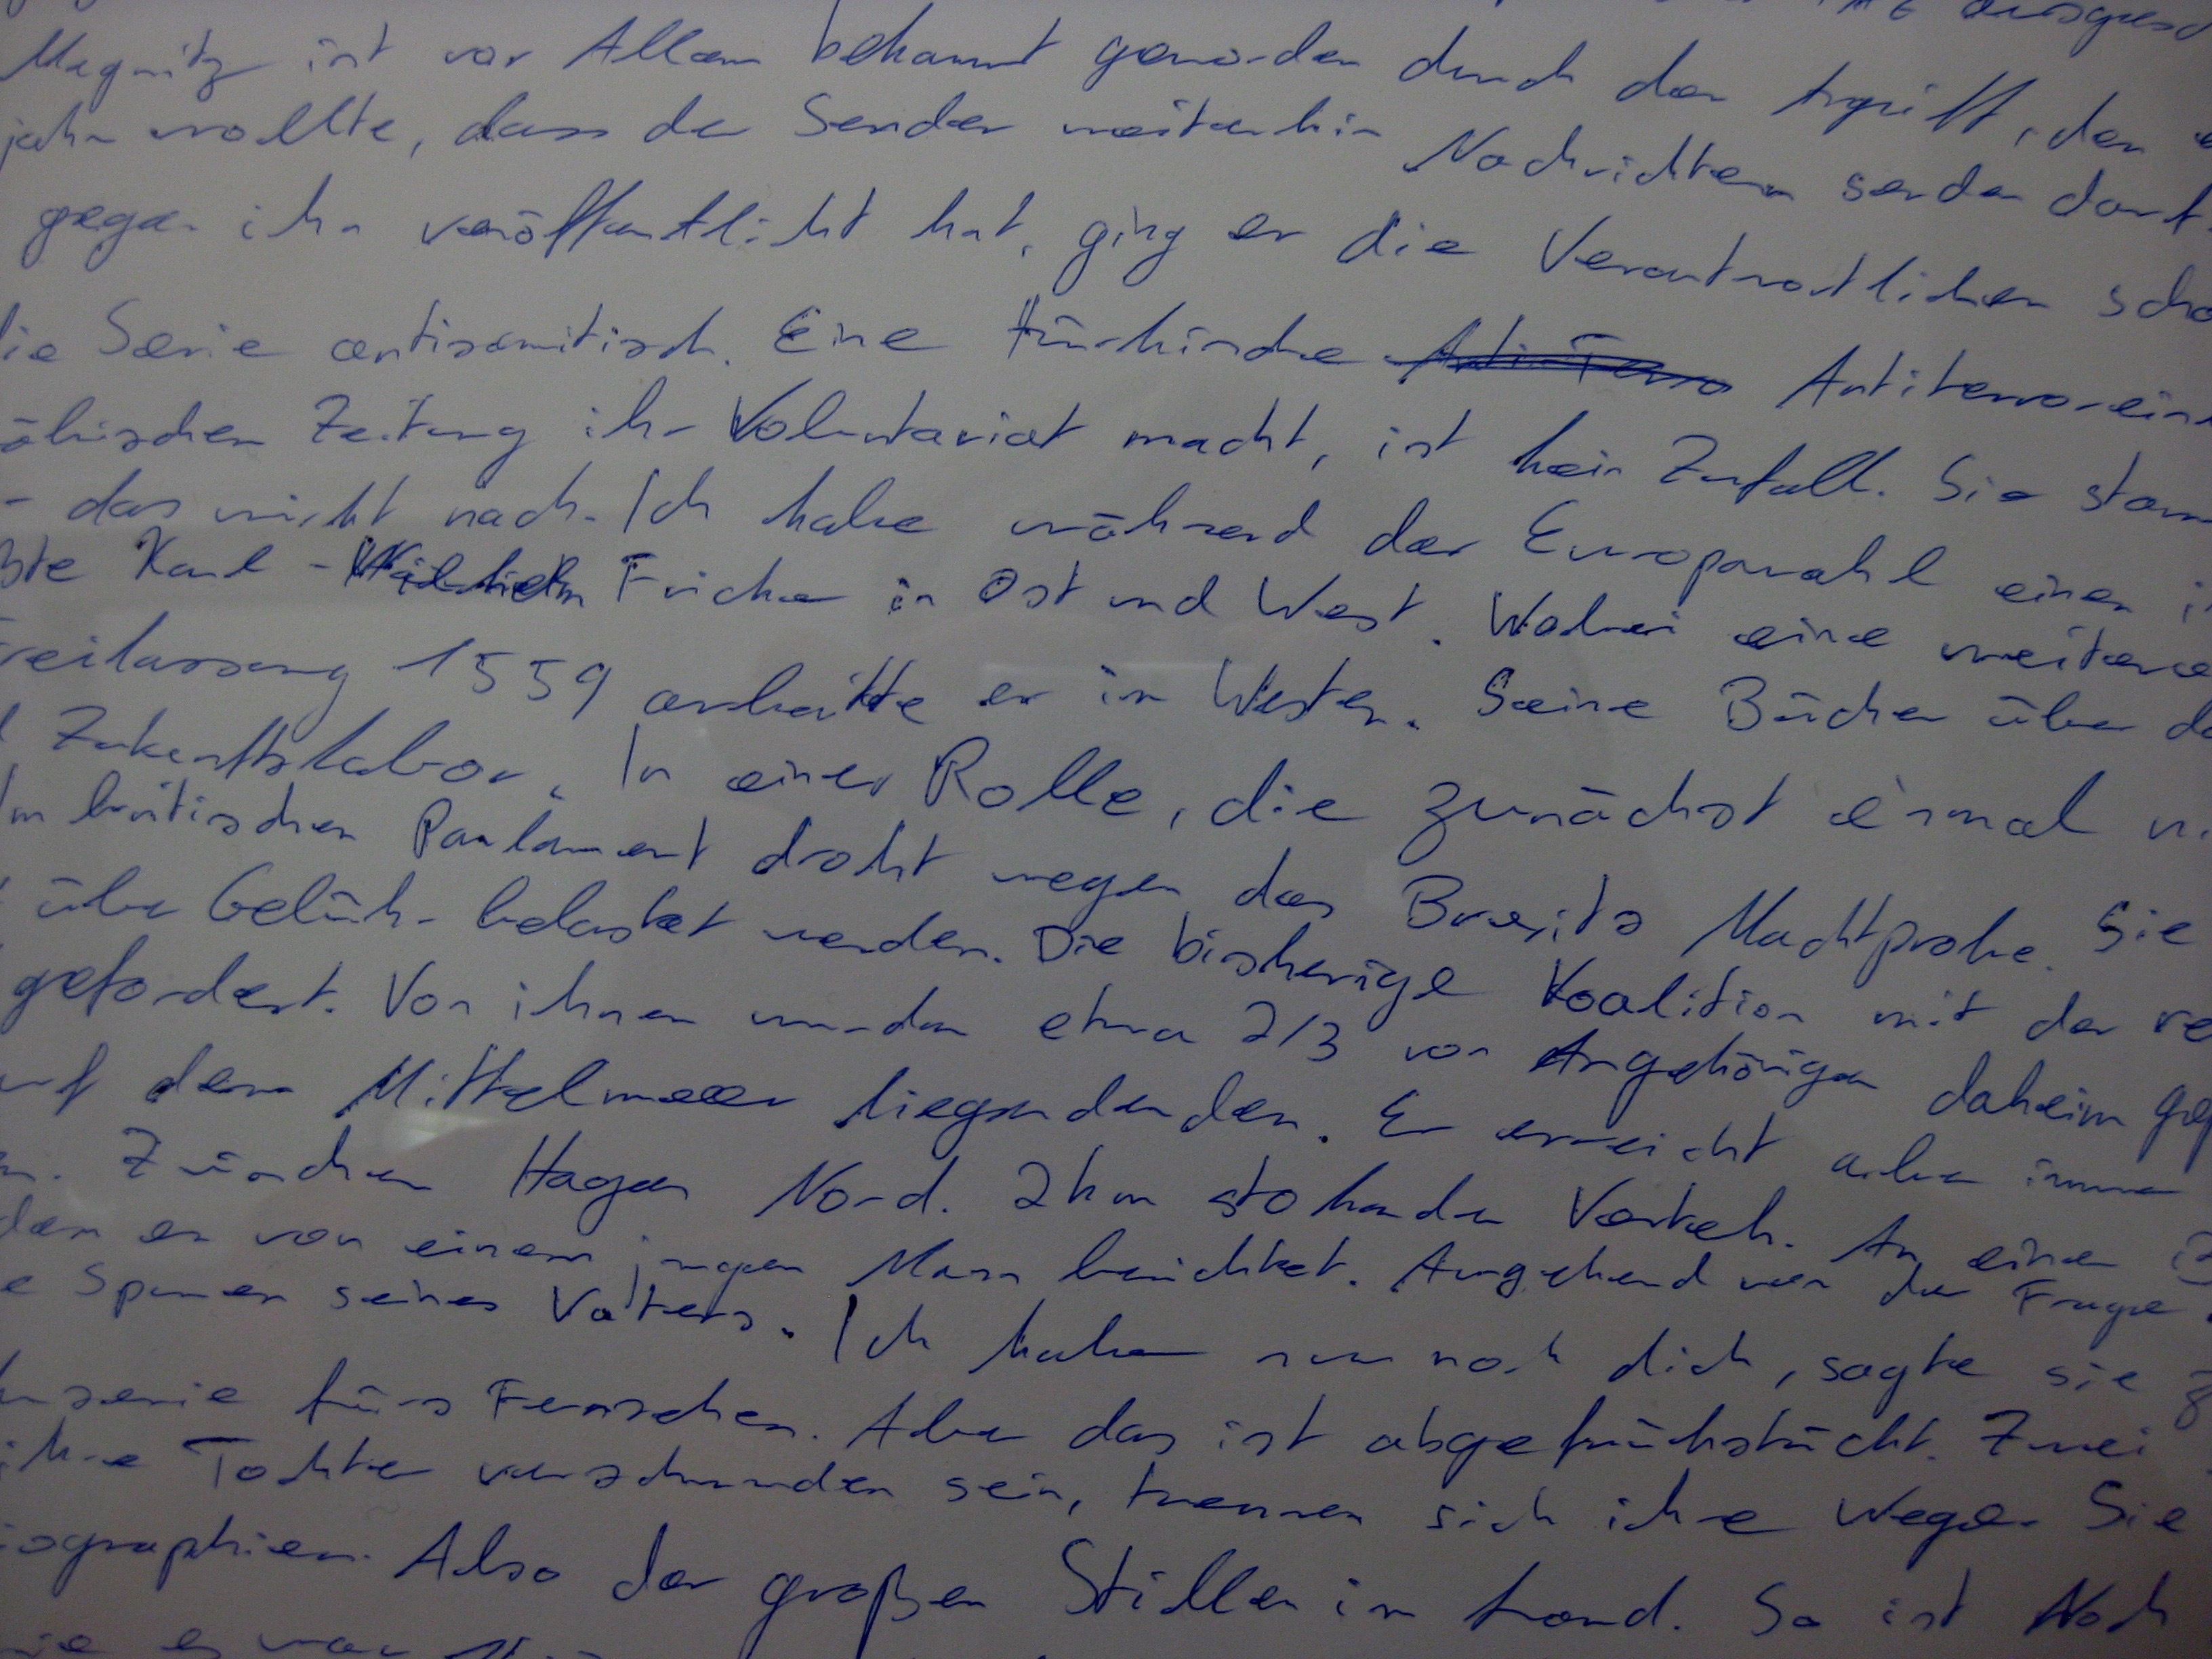 ausgesc
Magnitz ist vor Allem bekannt geworden durch den Angriff, den
jahr wollte, dass der Sender weiterhin Nachrichten senden darf.
gegen ihn veröffentlicht hat, ging er die Verantwortlichen scho
die Serie antisemitisch. Eine türkische Antiterroein
ökischen Zeitung ihr Voluntariat macht, ist kein Zufall. Sie stam
- das nicht nach. Ich habe während der Europawahl einen i
ßte Karl-Wilhelm Fricke in Ost und West. Wobei eine weitere
Freilassung 1559 arbeitte er im Westen. Seine Bücher über d
Zukunftslabor. In einer Rolle, die zunächst einmal n
Im britischen Parlament droht wegen des Brexits Machtprobe. Sie
über Gebühr belastet werden. Die bisherige Koalition mit der re
gefordert. Von ihnen wurden etwa 2/3 von Angehörigen daheim gep
auf dem Mittelmeer liegendenden. Er erreicht aber immer
n. Zwischen Hagen Nord. 2km stokender Verkeh. An einen
dem er von einem jungen Mann berichtet. Ausgehend von der Frage
e Spuren seines Vaters. Ich habe nur noch dich, sagte sie z
serie fürs Fernsehen. Aber das ist abgefrühstückt. Zwei
ihre Tochter verschwunden sein, trennen sich ihre Wege. Sie
iographien. Also der großen Stillen im Land. So ist Noch
wie es war